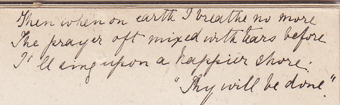 Then when on earth I breathe no more
The prayer oft mixed with tears before
I'll sing upon a happier shore.
"Thy will be done".